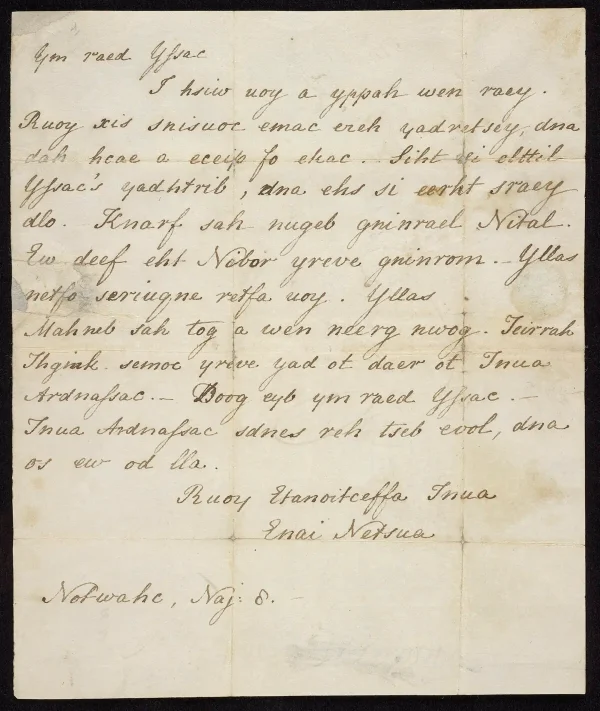 Ym raed Yssac
I hsiw uoy a yppah wen raey.
Ruoy xis snisuoc emac ereh yadretsey, dna
dah hcae a eceip fo ekac. – Siht si elttil
Yssac's yadhtrib, dna ehs si eerht sraey
dlo. Knarf sah nugeb gninrael Nital.
Ew deef eht Nibor yreve gninrom. – Yllas
netfo seriuqne retfa uoy. Yllas
Mahneb sah tog a wen neerg nwog. Teirrah
Thgink semoc yreve yad ot daer ot Tnua
Ardnassac. – Doog eyb ym raed Yssac. –
Tnua Ardnassac sdnes reh tseb evol, dna
os ew od lla.
Ruoy Etanoitceffa Tnua
Enai Netsua
Notwahc, Naj: 8. –